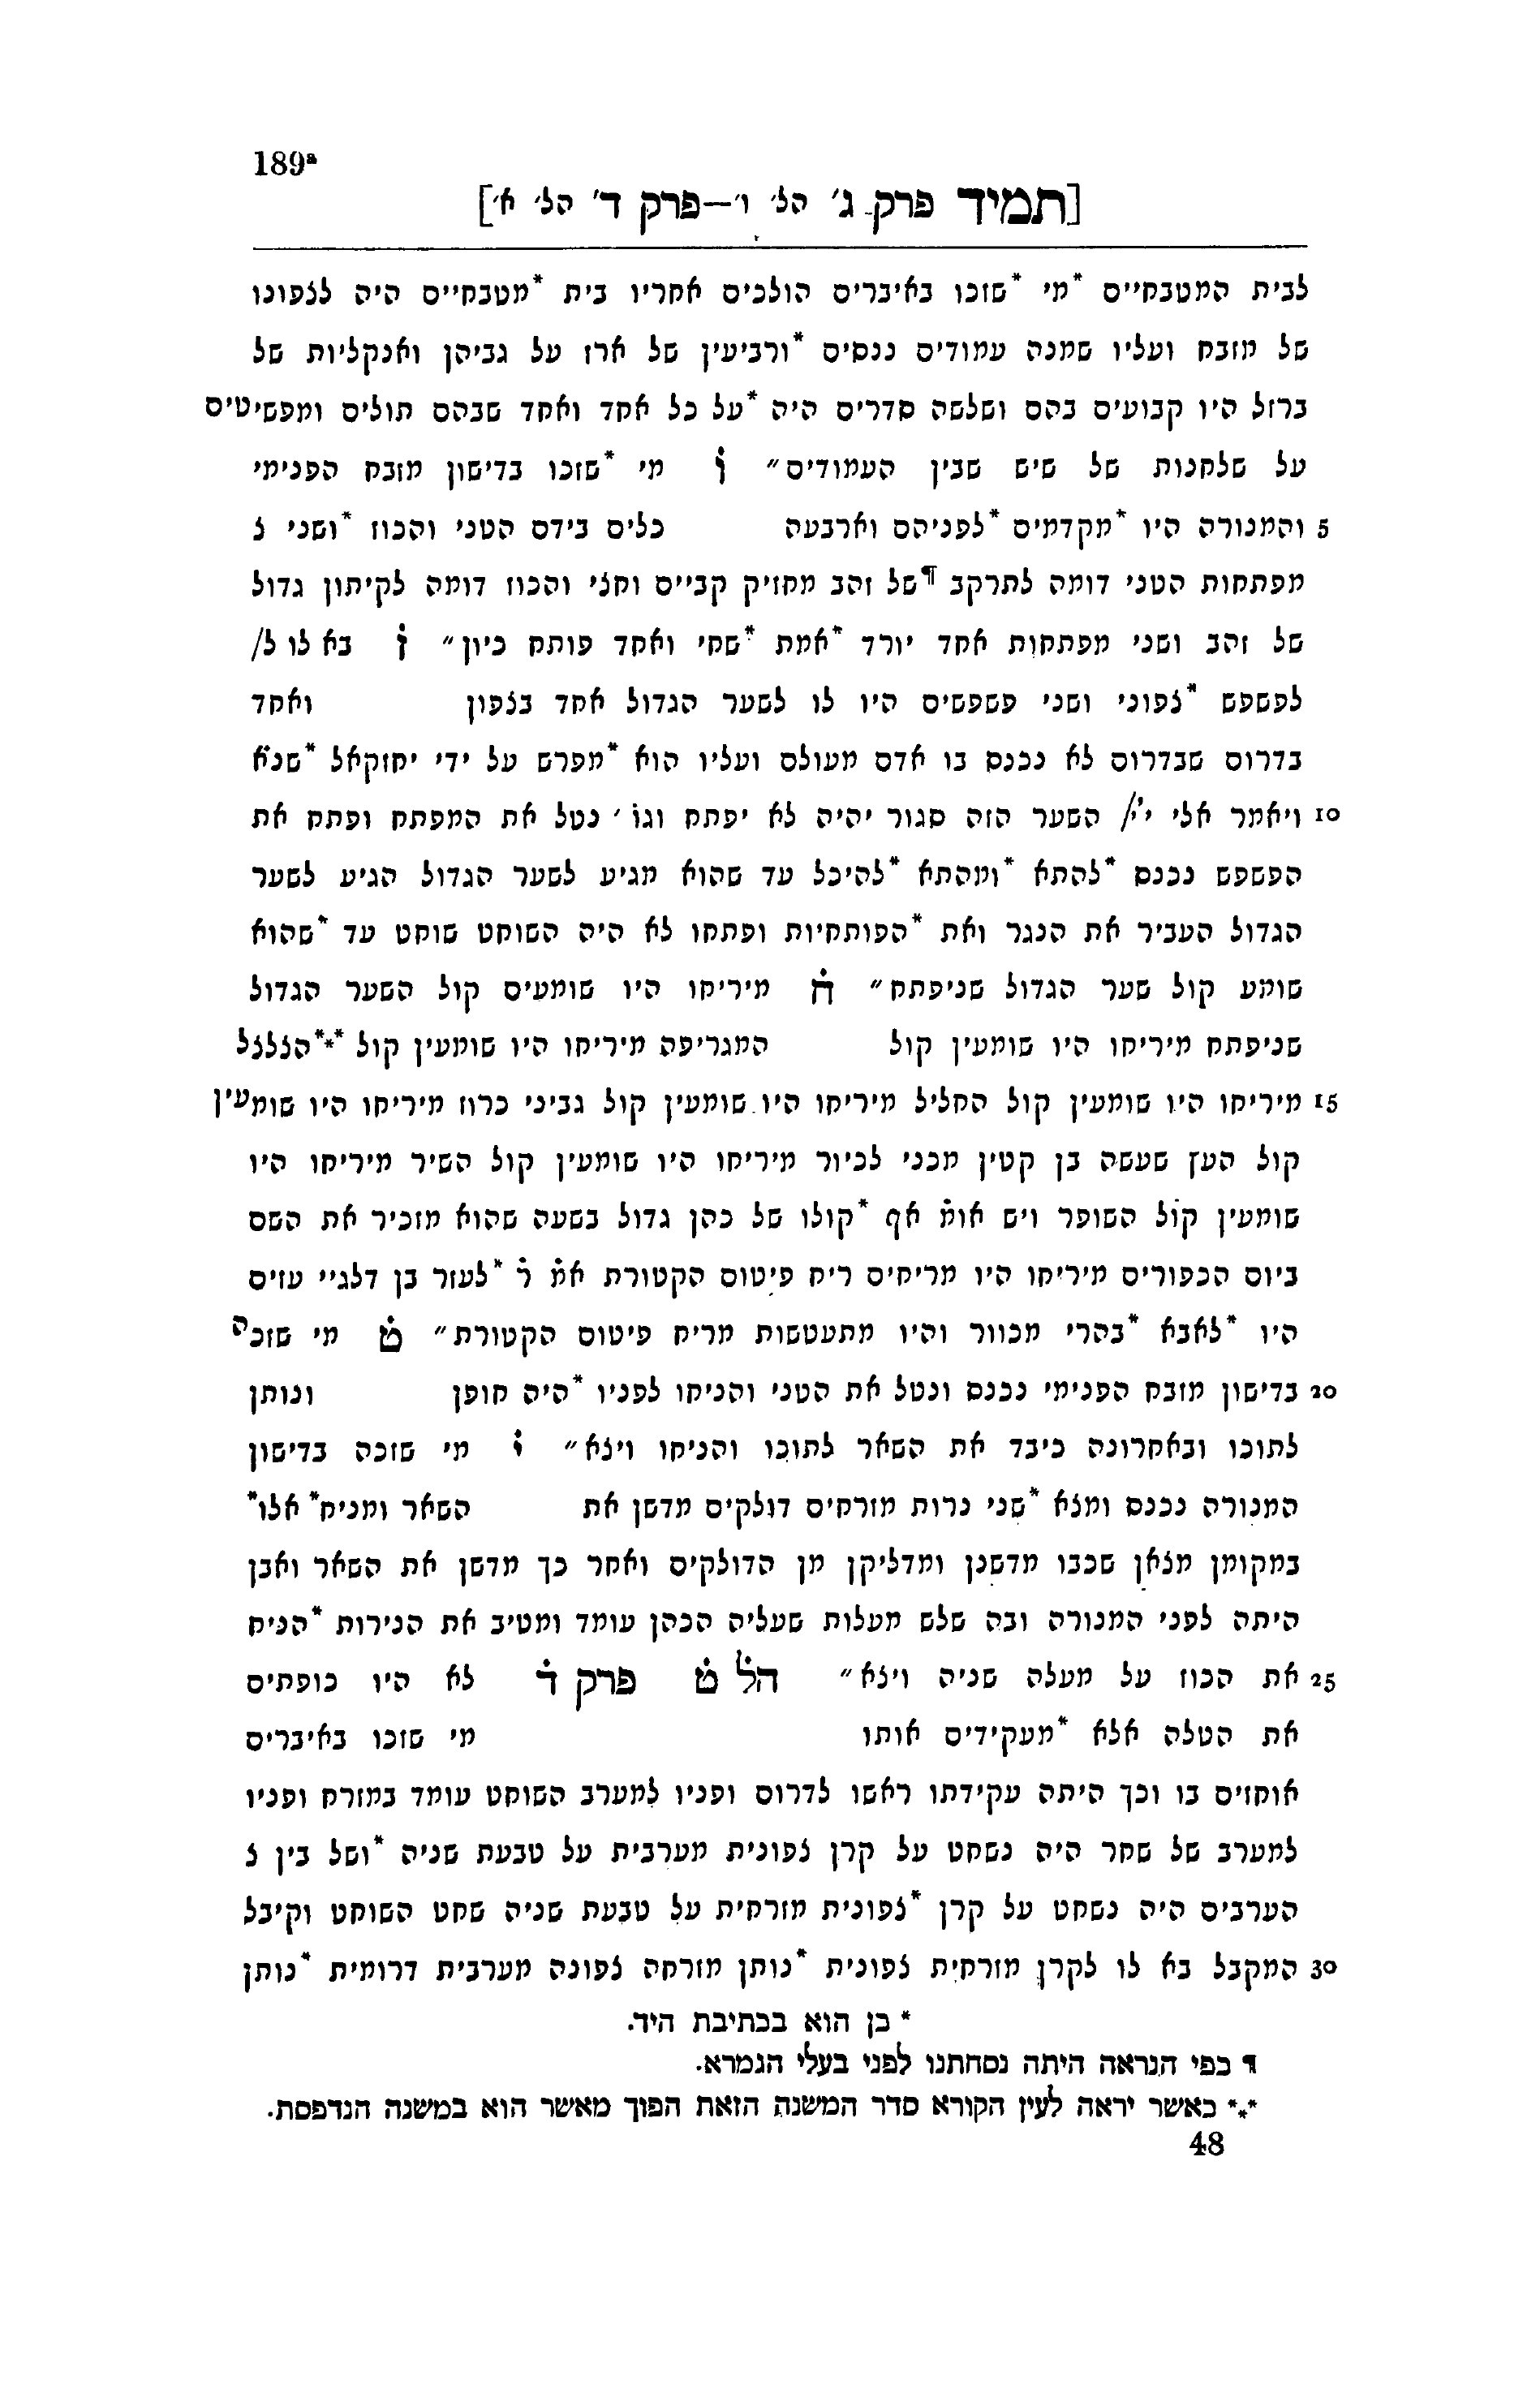 189ª
[תמיד פרק ג׳ הל׳ ו׳—פרק ד׳ הל׳ א׳]
לבית המטבחיים *מי *שזכו באיברים הולכים אחריו בית *מטבחיים היה לצפונו
של מזבח ועליו שמנה עמודים ננסים *ורביעין של ארז על גביהן ואנקליות של
ברזל היו קבועים בהם ושלשה סדרים היה *על כל אחד ואחד שבהם תולים ומפשיטים
על שלחנות של שיש שבין העמודים״ ו̇ מי *שזכו בדישון מזבח הפנימי
5 והמנורה היו *מקדמים *לפניהם וארבעה כלים בידם הטני והכוז *ושני צ
מפתחות הטני דומה לתרקב ¶של זהב מחזיק קביים וחצי והכוז דומה לקיתון גדול
של זהב ושני מפתחות אחד יורד *אמת *שחי ואחד פותח כיון״ ז̇ בא לו ל/
לפשפש *צפוני ושני פשפשים היו לו לשער הגדול אחד בצפון ואחד
בדרום שבדרום לא נכנס בו אדם מעולם ועליו הוא *מפרש על ידי יחזקאל *שנא̇
10 ויאמר אלי י׳׳/ השער הזה סגור יהיה לא יפתח וגו̇ ׳ נטל את המפתח ופתח את
הפשפש נכנס *להתא *ומהתא *להיכל עד שהוא מגיע לשער הגדול הגיע לשער
הגדול העביר את הנגר ואת *הפותחיות ופתחו לא היה השוחט שוחט עד *שהוא
שומע קול שער הגדול שניפתח״ ח̇ מיריחו היו שומעים קול השער הגדול
שניפתח מיריחו היו שומעין קול המגריפה מיריחו היו שומעין קול **​*הצלצל
15 מיריחו היו שומעין קול החליל מיריחו היו שומעין קול גביני כרוז מיריחו היו שומעין
קול העץ שעשה בן קטין מכני לכיור מיריחו היו שומעין קול השיר מיריחו היו
שומעין קול השופר ויש אומ̇ אף *קולו של כהן גדול בשעה שהוא מזכיר את השם
ביום הכפורים מיריחו היו מריחים ריח פיטום הקטורת אמ̇ ר̇ *לעזר בן דלגיי עזים
היו *לאבא *בהרי מכוור והיו מתעטשות מריח פיטום הקטורת״ ט̇ מי שזכה
20 בדישון מזבח הפנימי נכנס ונטל את הטני והניחו לפניו *היה חופן ונותן
לתוכו ובאחרונה כיבד את השאר לתוכו והניחו ויצא״ י̇ מי שזכה בדישון
המנורה נכנס ומצא *שני נרות מזרחים דולקים מדשן את השאר ומניח* אלו*
במקומן מצאן שכבו מדשנן ומדליקן מן הדולקים ואחר כך מדשן את השאר ואבן
היתה לפני המנורה ובה שלש מעלות שעליה הכהן עומד ומטיב את הנירות *הניח
25 את הכוז על מעלה שניה ויצא״ הל̇ ט̇ פרק ד̇ לא היו כופתים
את הטלה אלא *מעקידים אותו מי שזכו באיברים
אוחזים בו וכך היתה עקידתו ראשו לדרום ופניו למערב השוחט עומד במזרח ופניו
למערב של שחר היה נשחט על קרן צפונית מערבית על טבעת שניה *ושל בין צ
הערבים היה נשחט על קרן *צפונית מזרחית על טבעת שניה שחט השוחט וקיבל
30 המקבל בא לו לקרן מזרחית צפונית *נותן מזרחה צפונה מערבית דרומית *נותן
* כן הוא בכתיבת היד.
¶ כפי הנראה היתה נסחתנו לפני בעלי הגמרא.
*** כאשר יראה לעין הקורא סדר המשנה הזאת הפוך מאשר הוא במשנה הנדפסת.
48